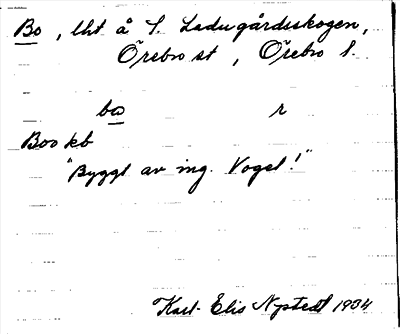 Bo, lht å S. Ladugårdsskogen,
Örebro st, Örebro l.
bo r
Boo kb
"Byggt av ing. Vogel!"
Karl-Elis Nystedt 1934